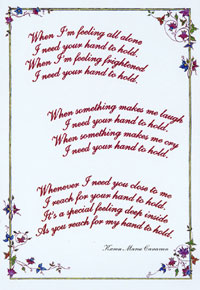 When I'm feeling all alone
I need your hand to hold.
When I'm feeling frightened
I need your hand to hold.
When something makes me laugh
I need your hand to hold.
When something makes me cry
I need your hand to hold.
Whenever I need you close to me
I reach for your hand to hold.
It's a special feeling deep inside
As you reach for my hand to hold.
Karen Maria